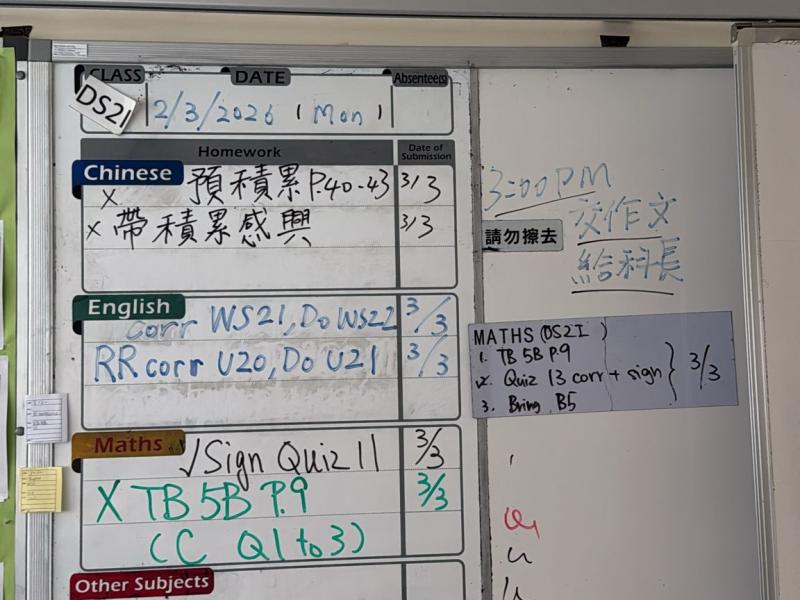 CLASS DATE Absentee(s)
DS21 2/3/2026 (Mon)
Homework Date of Submission
Chinese
x 預積累P.40-43 3/3
x 帶積累感興 3/3
English
corr WS21, Do WS22 3/3
RR corr U20, Do U21 3/3
Maths
√Sign Quiz 11 3/3
X TB 5B P.9 3/3
(C Q1 to 3)
Other Subjects
3:00 PM
交作文
請勿擦去
給科長
MATHS (DS2I)
1. TB 5B P.9
2. Quiz 13 corr + sign } 3/3
3. Bring B5